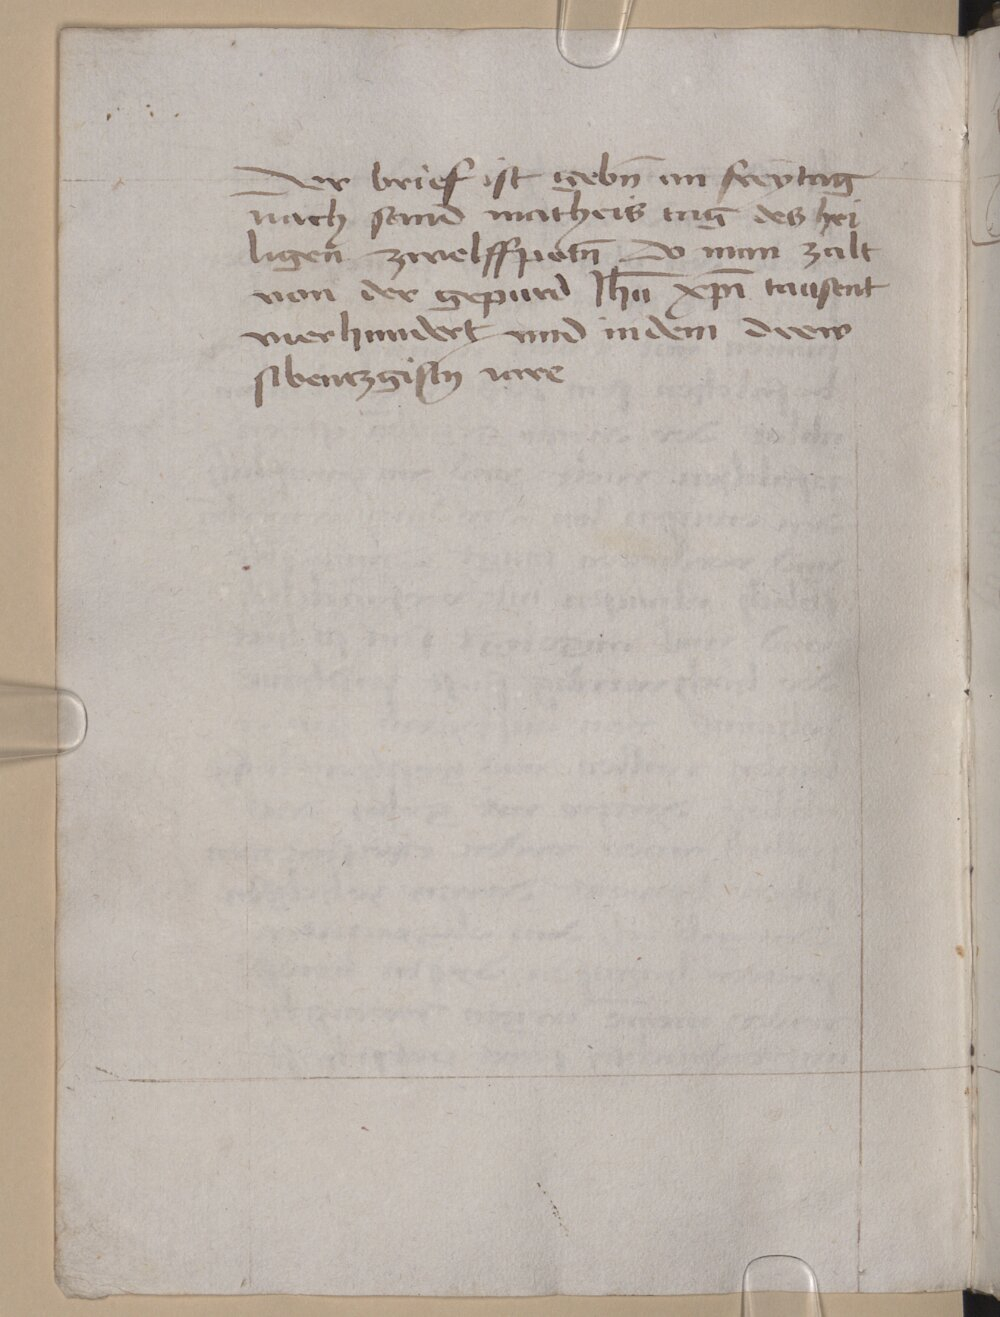 Der brief ist gebn̄ am freytag
nach sand matheis tag des hei
ligen zwelffpotn̄ Do man zalt
von der gepurd Jhū xp̄i tausent
vierhundert und in dem drew
sibentzgistn jare